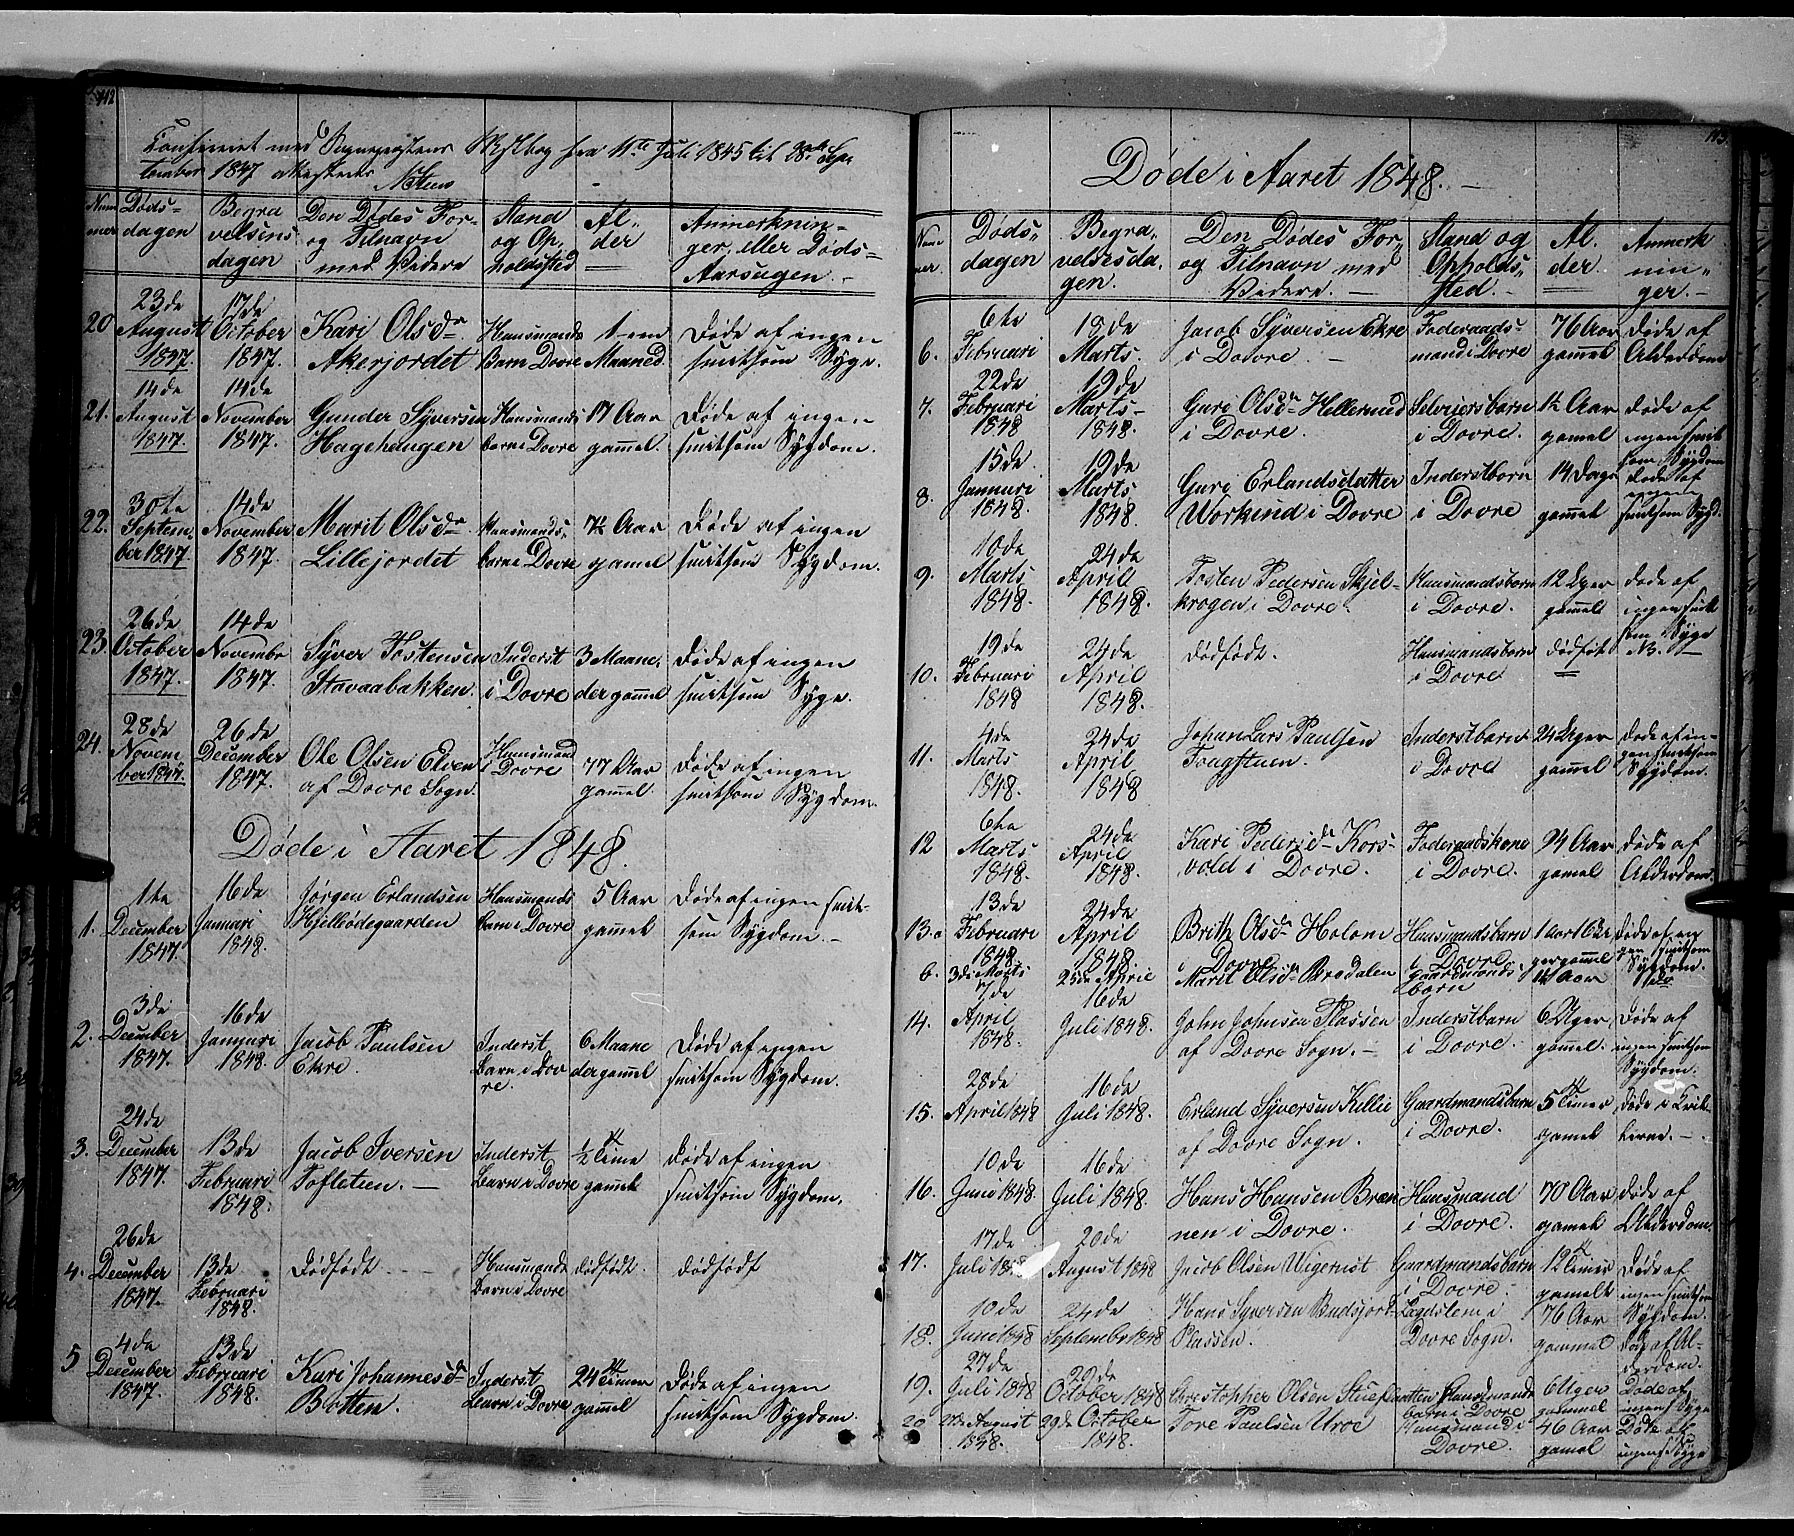 142
Confereret med Sognepræstens Bog fra 11te Juli 1845 til 28de Sep-
tember 1847 attesteres
Num
mer
Døds-
dagen
Begra
velsens
dagen
Den Dødes For-
og Tilnavn
med Videre
Stand
og Op,
holdssted
Al-
der
Anmerknin-
ger eller Døds-
Aarsagen.
20
23de
August
1847
17de
October
1847.
Kari Olsdr
Akerjordet
Huusmands
Barn Dovre
1-een
Maaned
Døde af ingen
smitsom Syge.
21.
14de
August
1847.
14de
November
1847.
Gunder Syversen
Hagehaugen
Huusmands
barn i Dovre
17 Aar
gammel.
Døde af ingen
smitsom Sygdom.
22.
30te
Septem-
ber 1847
14de
November
1847.
Marit Olsdr
Lillejordet
Huusmands-
barn i Dovre
7½ Aar
gamel
Døde af ingen
smitsom Sygdom.
23.
26de
October
1847.
14de
Novembr
1847.
Syver Tostensen
Stavaabakken.
Inderst
i Dovre
3 Maane,
der gammel
Døde af ingen
smitsom Syge.
24.
28de
Novem-
ber 1847.
26de
December
1847.
Ole Olsen
af Dovre Sogn.
Huusmand
i Dovre
77 Aar
gamel
Døde af ingen
smitsom Sygdom.
Døde i Aaret 1848.
1.
1te
December
1847.
16de
Januari
1848.
Jørgen Erlandsen
Hjellødegaarden
Huusmands
barn i Dovre
5 Aar
gammel
Døde af ingen smit-
som Sygdom.
2.
3de
December
1847.
16de
Januari
1848.
Jacob Paulsen
Ekre.
Inderst
Barn i Dov
re.
6 Maane
der gammel
Døde af ingen
smitsom Sygdom.
3.
24de
December
1847.
13de
Februari
1848.
Jacob Iversen
Toftetien.
Inderst
Barn i Dovre
½ Time
gammel
Døde af ingen
smitsom Sygdom.
4.
26de
December
1847.
13de
Februari
1848.
Dødfødt
Huusmands
Barn i Dovre
Dødfødt.
Dødfødt
5
4de
December
1847.
13de
Februari
1848.
Kari Johannesdr
Botten.
Inderst
Barn i Dovre
24 Timer
gammel
Døde af ingen
smitsom Sygdom.
143.
Døde i Aaret 1848.
Num
mer
Døds-
dagen
Begra-
velsesda-
gen.
Den Dødes For-
og Tilnavn med
Videre.
Stand og
Opholds-
sted.
Al-
der.
Anmerk
nin-
ger.
6.
6te
Februari
18de
Marts.
Jacob Syversen Ekre
i Dovre.
Føderaads-
mand i Dovre
76 Aar
gammel
Døde af
Alderdom
7.
22de
Februari
1848
19de
Marts
1848.
Guri Olsdr Hellerud
i Dovre.
Selveiersbarn
i Dovre.
1½ Aar
gamel
Døde af
ingen smit
som Sygdom
8.
15de
Januari
1848.
19de
Marts
1848.
Guri Erlandsdatter
Workind i Dovre
Inderstbarn
i Dovre
14 Dage
gammel
Døde af
ingen
smitsom Sygd.
9.
10de
Marts
1848.
24de
April
1848.
Tosten Pedersen Skjel-
krogen i Dovre.
Huusmandsbarn
i Dovre.
12 Uger
gammel
Døde af
ingen smit
som Syge
10.
19de
Februari
1848
24de
April
1848.
Dødfødt.
Huusmandsbarn
i Dovre
Dødfødt
NB.
11.
4de
Marts
1848.
24de
April
1848
Johan Lars Paulsen
Fougstuen.
Inderstbarn
i Dovre
24 Uger
gammel
Døde af in-
gen smitsom
Sygdom.
12
6te
Marts
1848.
24de
April
1848.
Kari Pedersdr Kors-
vold i Dovre.
Føderaadskone
i Dovre.
94 Aar
gamel
Døde af
Alderdom.
13.
13de
Februari
1848
24de
April
1848
Brith Olsdr Holom
i Dovre
Huusmandsbarn
i Dovre
1 aar 16 U
ger gammel
Døde af in
gen smitsom
Sygdom.
6.
3de Marts
25de April
Marit Olsdr Brødalen
Gaardmands
barn
1¼ Aar
do
14.
7de
April
1848.
16de
Juli 1848.
John Johnsen Plassen
af Dovre Sogn.
Inderstbarn
i Dovre.
6 Uger
gammel.
Døde af
ingen smitsom
Sygdom.
15.
28de
April 1848
16de
Juli 1848.
Erland Syversen Killie
af Dovre Sogn.
Gaardmandsbarn
i Dovre.
5 Timer
gamel
16.
10de
Juni 1848
16de
Juli 1848.
Hans Hansen Bræn
nen i Dovre.
Huusmand
i Dovre.
70 Aar
gamel
Døde af
Alderdom.
17.
17de
Juli 1848
20de
August 1848
Jacob Olsen Wigerust
Gaardmandsbarn
i Dovre.
12 Timer
gamelt
Døde af
ingen smitsom
Sygdom.
18.
10de
Juni 1848
24de
September 1848
Hans Syversen Budsjord-
Plassen.
Lægdslem i
Dovre Sogn.
76 Aar
gammel
Døde af Al-
derdom.
19.
27de
Juli 1848
29de
October 1848
Christopher Olsen
barn i Dovre
6 Uger
gammel
Døde af
ingen s. Syge
20
August
1848.
29de October
1848.
Tore Paulsen Uroe
Huusmand i
Dovre.
46 Aar
gamel
Døde af
ingen s. Syge